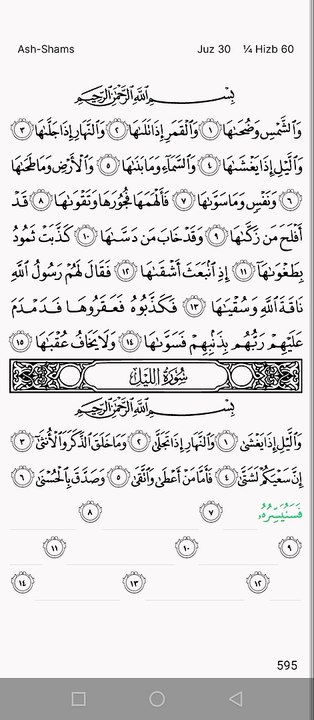 Ash-Shams Juz 30 ¼ Hizb 60
بِسْمِ اللَّهِ الرَّحْمَٰنِ الرَّحِيمِ
وَالشَّمْسِ وَضُحَىٰهَا ١ وَالْقَمَرِ إِذَا تَلَىٰهَا ٢ وَالنَّهَارِ إِذَا جَلَّىٰهَا ٣
وَالَّيْلِ إِذَا يَغْشَىٰهَا ٤ وَالسَّمَآءِ وَمَا بَنَىٰهَا ٥ وَالْأَرْضِ وَمَا طَحَىٰهَا
٦ وَنَفْسٍ وَمَا سَوَّىٰهَا ٧ فَأَلْهَمَهَا فُجُورَهَا وَتَقْوَىٰهَا ٨ قَدْ
أَفْلَحَ مَن زَكَّىٰهَا ٩ وَقَدْ خَابَ مَن دَسَّىٰهَا ١٠ كَذَّبَتْ ثَمُودُ
بِطَغْوَىٰهَآ ١١ إِذِ انۢبَعَثَ أَشْقَىٰهَا ١٢ فَقَالَ لَهُمْ رَسُولُ اللَّهِ
نَاقَةَ اللَّهِ وَسُقْيَىٰهَا ١٣ فَكَذَّبُوهُ فَعَقَرُوهَا فَدَمْدَمَ
عَلَيْهِمْ رَبُّهُم بِذَنۢبِهِمْ فَسَوَّىٰهَا ١٤ وَلَا يَخَافُ عُقْبَىٰهَا ١٥
سُورَةُ اللَّيْلِ
بِسْمِ اللَّهِ الرَّحْمَٰنِ الرَّحِيمِ
وَالَّيْلِ إِذَا يَغْشَىٰ ١ وَالنَّهَارِ إِذَا تَجَلَّىٰ ٢ وَمَا خَلَقَ الذَّكَرَ وَالْأُنثَىٰٓ ٣
إِنَّ سَعْيَكُمْ لَشَتَّىٰ ٤ فَأَمَّا مَنْ أَعْطَىٰ وَاتَّقَىٰ ٥ وَصَدَّقَ بِالْحُسْنَىٰ ٦
فَسَنُيَسِّرُهُۥ ٧ ٨
٩ ١٠ ١١
١٢ ١٣ ١٤
595